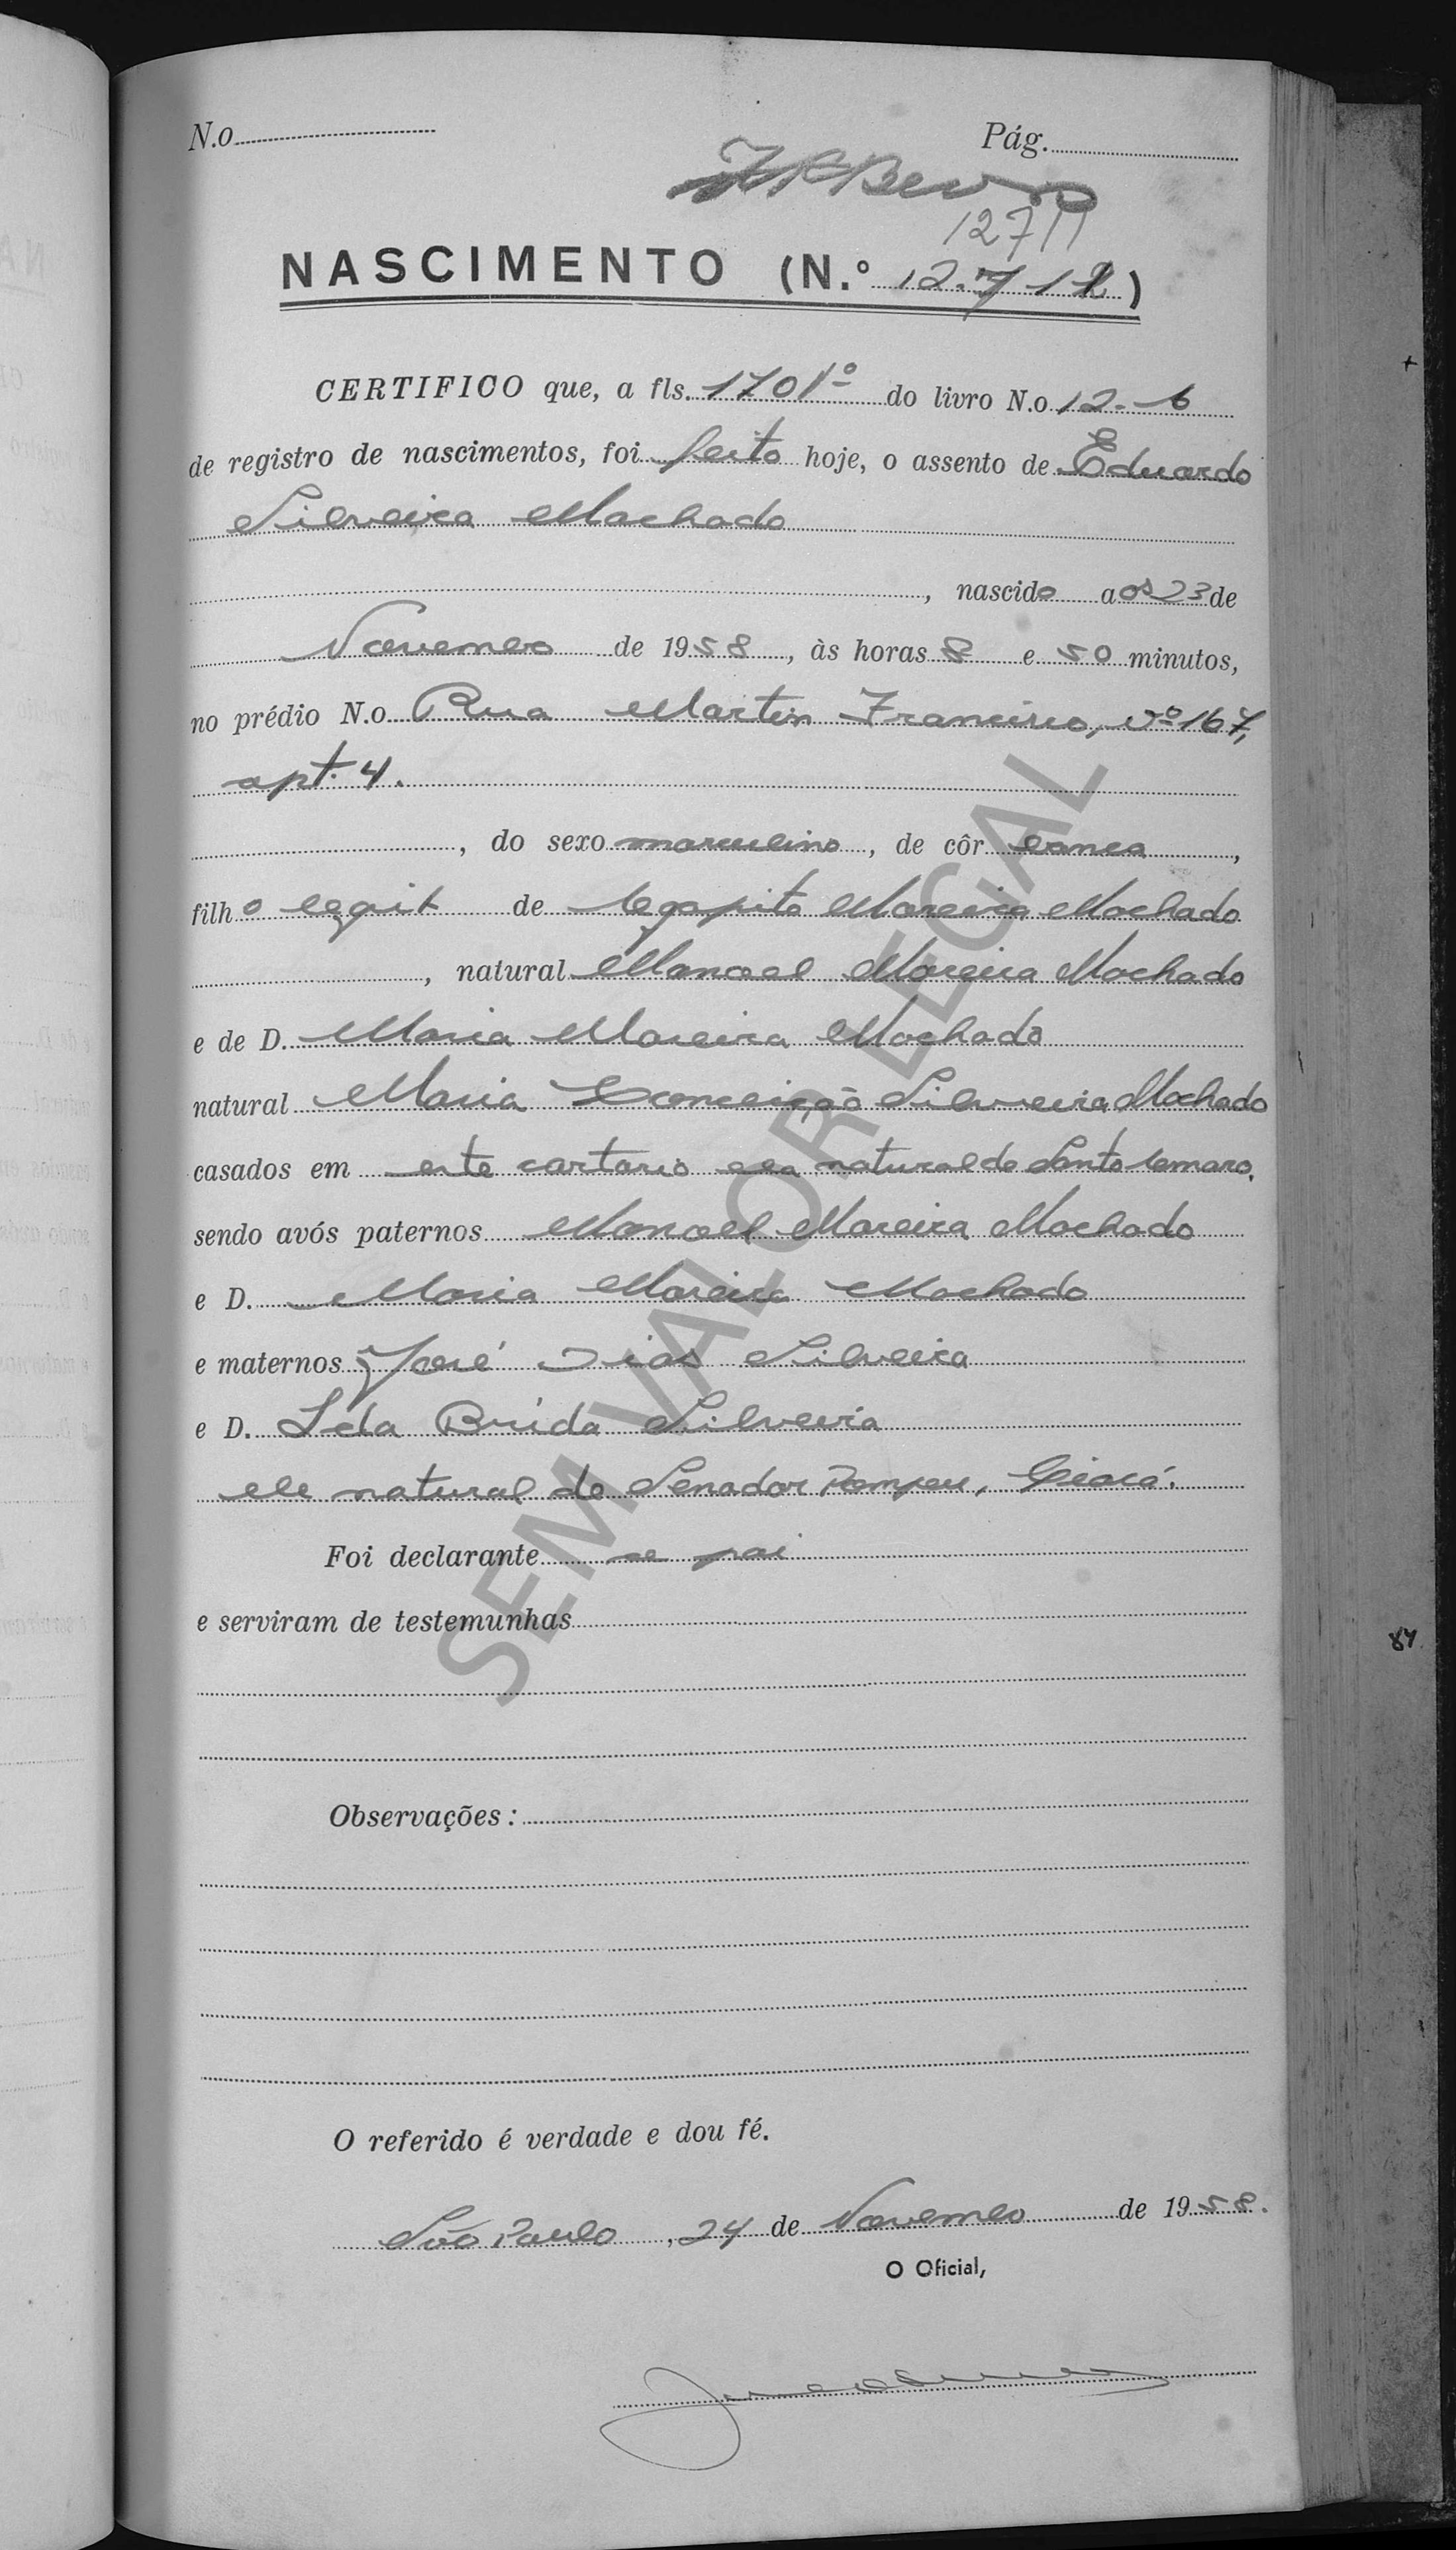 N.o Pág.
12711
NASCIMENTO (N.º 12.712)
CERTIFICO que, a fls. 170 vº do livro N.o 12-b
de registro de nascimentos, foi feito hoje, o assento de Eduardo
Silveira Machado
, nascido aos 23 de
Novembro de 1958, às horas 8 e 50 minutos,
no prédio N.o Rua Martim Francisco, nº 167,
apt. 4.
, do sexo masculino, de côr branca,
filho legit de Agapito Moreira Machado
, natural Manoel Moreira Machado
e de D. Maria Moreira Machado
natural Maria Conceição Silveira Machado
casados em este cartorio ela natural de Santo Amaro.
sendo avós paternos Manoel Moreira Machado
e D. Maria Moreira Machado
e maternos José Dias Silveira
e D. Leda Brida Silveira
ele natural de Senador Pompeu, Ceará.
Foi declarante o pai
e serviram de testemunhas
Observações:
O referido é verdade e dou fé.
São Paulo, 24 de Novembro de 1958.
O Oficial,
SEM VALOR LEGAL
84